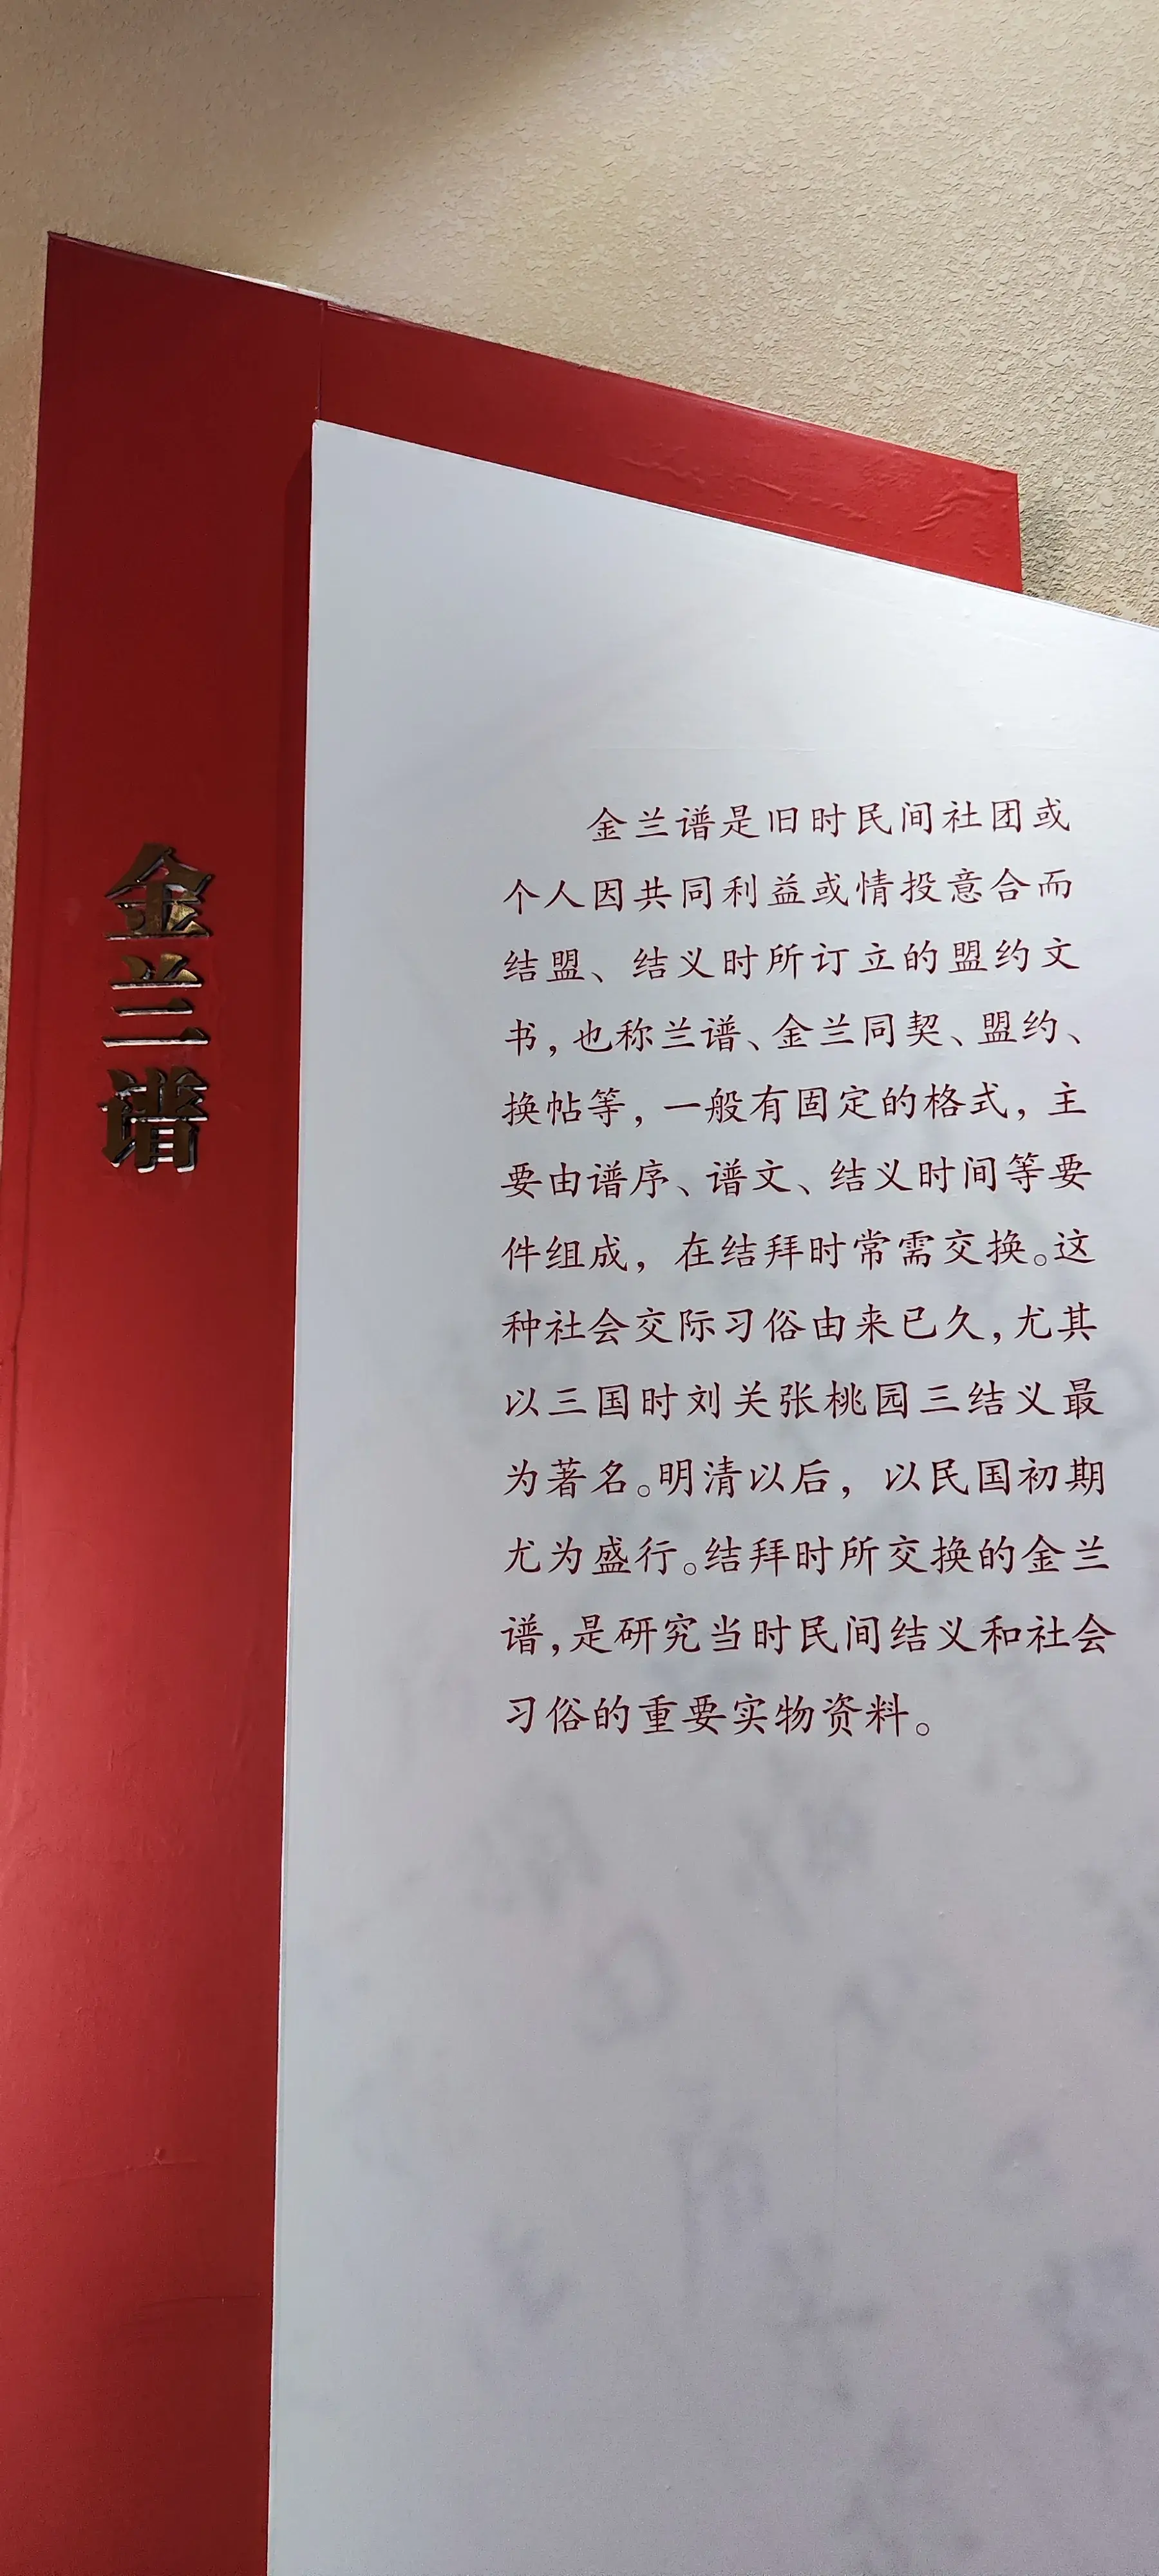 金兰谱
金兰谱是旧时民间社团或
个人因共同利益或情投意合而
结盟、结义时所订立的盟约文
书,也称兰谱、金兰同契、盟约、
换帖等,一般有固定的格式,主
要由谱序、谱文、结义时间等要
件组成,在结拜时常需交换。这
种社会交际习俗由来已久,尤其
以三国时刘关张桃园三结义最
为著名。明清以后,以民国初期
尤为盛行。结拜时所交换的金兰
谱,是研究当时民间结义和社会
习俗的重要实物资料。